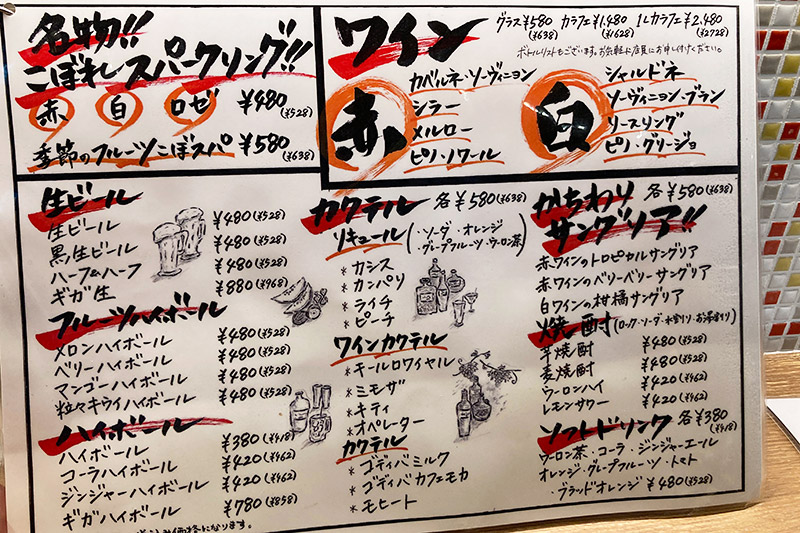 名物!!
こぼれしスパークリング!!
赤 白 ロゼ ¥480(¥528)
季節のフルーツこぼスパ ¥580(¥638)
ワイン
グラス¥580(¥638) カラフェ¥1.480(¥1628) 1Lカラフェ¥2.480(¥2728)
ボトルリストもございます。お気軽に店員にお申し付けください。
赤
カベルネ・ソーヴィニヨン
シラー
メルロー
ピノ・ノワール
白
シャルドネ
ソーヴィニヨン・ブラン
リースリング
ピノ・グリージョ
生ビール
生ビール ¥480(¥528)
黒生ビール ¥480(¥528)
ハーフ&ハーフ ¥480(¥528)
ギガ生 ¥880(¥968)
フルーツハイボール
メロンハイボール ¥480(¥528)
ベリーハイボール ¥480(¥528)
マンゴーハイボール ¥480(¥528)
粒々キウイハイボール ¥480(¥528)
ハイボール
ハイボール ¥380(¥418)
コーラハイボール ¥420(¥462)
ジンジャーハイボール ¥420(¥462)
ギガハイボール ¥780(¥858)
価格になります。
カクテル 各¥580(¥638)
リキュール(・ソーダ・オレンジ
・グレープフルーツ・ウーロン茶)
*カシス
*カンパリ
*ライチ
*ピーチ
ワインカクテル
*キールロワイヤル
*ミモザ
*キティ
*オペレーター
カクテル
*ゴディバミルク
*ゴディバカフェモカ
*モヒート
かちわり 各¥580(¥638)
サングリア!!
赤ワインのトロピカルサングリア
赤ワインのベリーベリーサングリア
白ワインの柑橘サングリア
焼酎(ロック・ソーダ・水割り・お湯割り)
芋焼酎 ¥480(¥528)
麦焼酎 ¥480(¥528)
ウーロンハイ ¥420(¥462)
レモンサワー ¥420(¥462)
ソフトドリンク 各¥380(¥418)
ウーロン茶・コーラ・ジンジャーエール
オレンジ・グレープフルーツ・トマト
・ブラッドオレンジ ¥480(¥528)